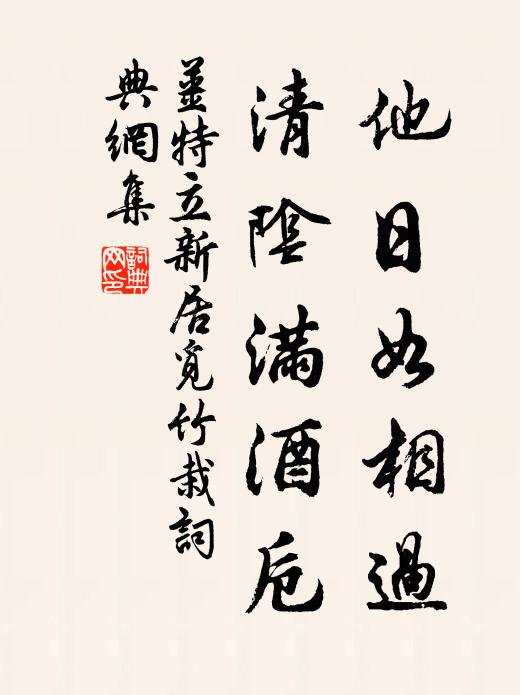 他日如相過
清陰滿酒卮
姜特立新居覓竹栽詞
典網集
詞典網印